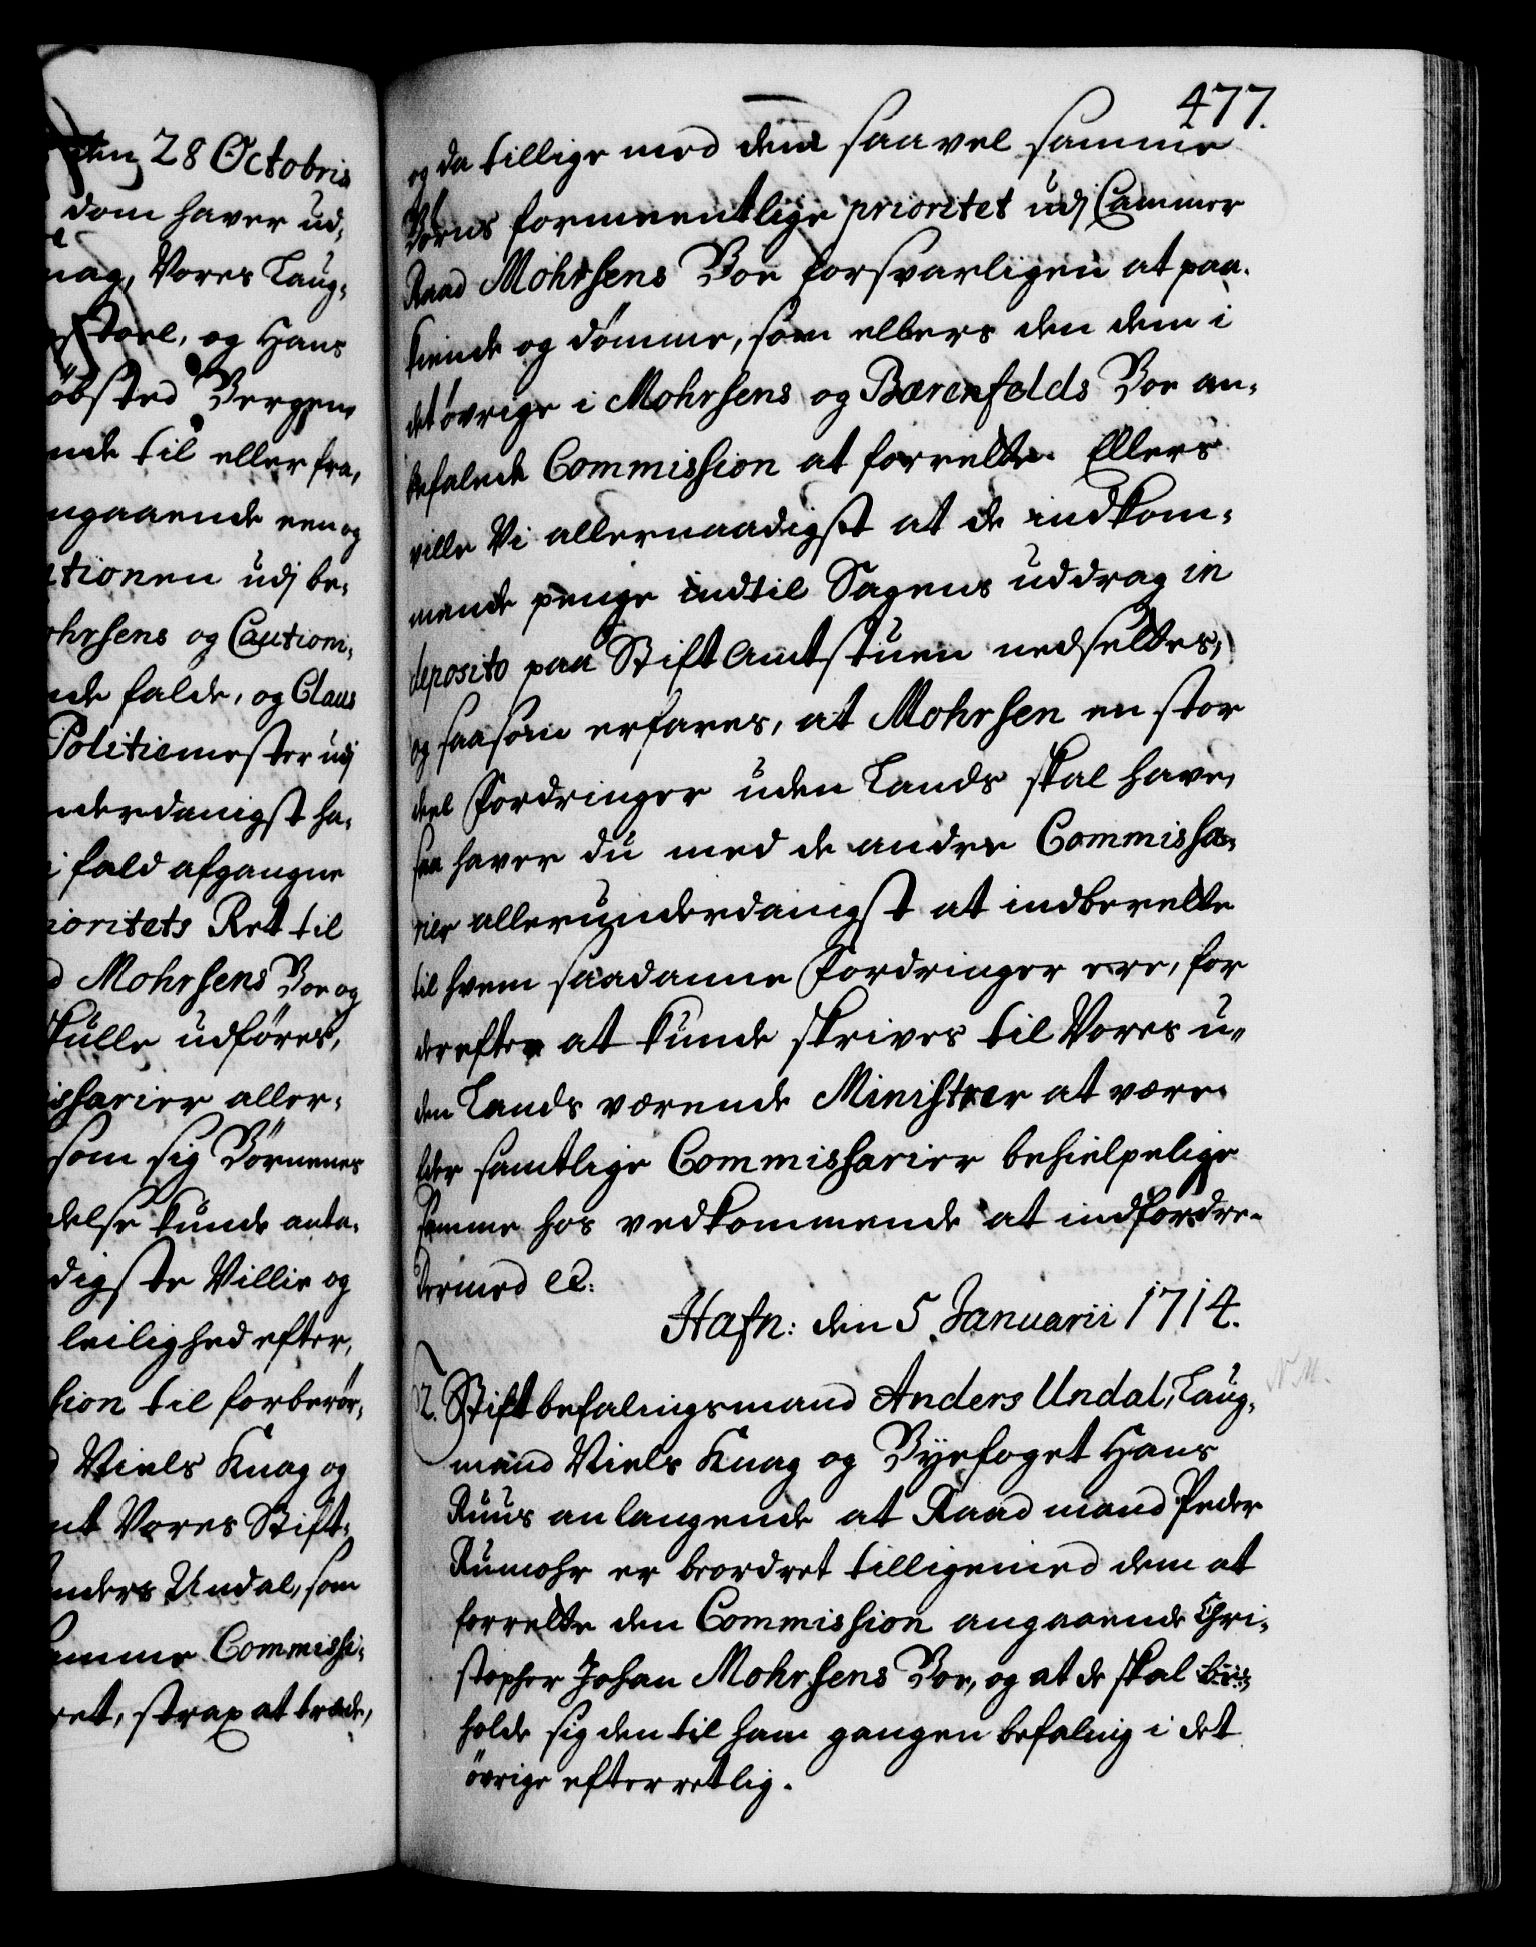 den 28 Octobris
dom haver ud-
nag, Vores Laug-
stoel, og Hans
öbsted Bergen
nde til eller fra,
ngaaende een og
tionen udj be-
ohrsens og Cautioni-
nde falde, og Claus
Politiemester udj
nderdanigst ha-
i fald afgangne
ioritets Ret til
d Mohrsens Boe og
kulle udföres,
issarier aller-
som sig Börnenes
delse kunde anta-
digste Villie og
leilighed efter,
sion til forberör-
d Niels Knag og
nt Vores Stift-
Anders Undal, som
amme Commissi-
ret, strax at træde,
477.
og da tillige med dem saavel samme
Börns formeentlige prioritet udj Cammer
Raad Mohrsens Boe forsvarligen at paa-
kiende og dömme, som ellers den dem i
det övrige i Mohrsens og Bærenfelds Boe an-
befalede Commission at forrette. Ellers
ville Vi allernaadigst at de indkom-
mende penge indtil Sagens uddrag in
deposito paa StiftAmtstuen nedsettes,
og saasom erfares, at Mohrsen en stor
deel Fordringer uden Lands skal have,
saa haver du med de andre Commissa-
rier allerunderdanigst at indberette
til hvem saadanne Fordringer ere, for
derefter at kunde skrives til Vores u-
den Lands værende Ministrer at være
eder samtlige Commissarier behielpelige
samme hos vedkommende at indfordre.
dermed etc:
Hafn: den 5 Januarii 1714.
N. M.
12. Stiftbefalingsmand Anders Undal, Laug-
mand Niels Knag og Byefoget Hans
Ruus anlangende at Raadmand Peder
Rumohr er beordret tilligemed dem at
forrette den Commission angaaende Chri-
stopher Johan Mohrsens Boe, og at de skal
holde sig den til ham gangen befaling i det
övrige efterretlig.